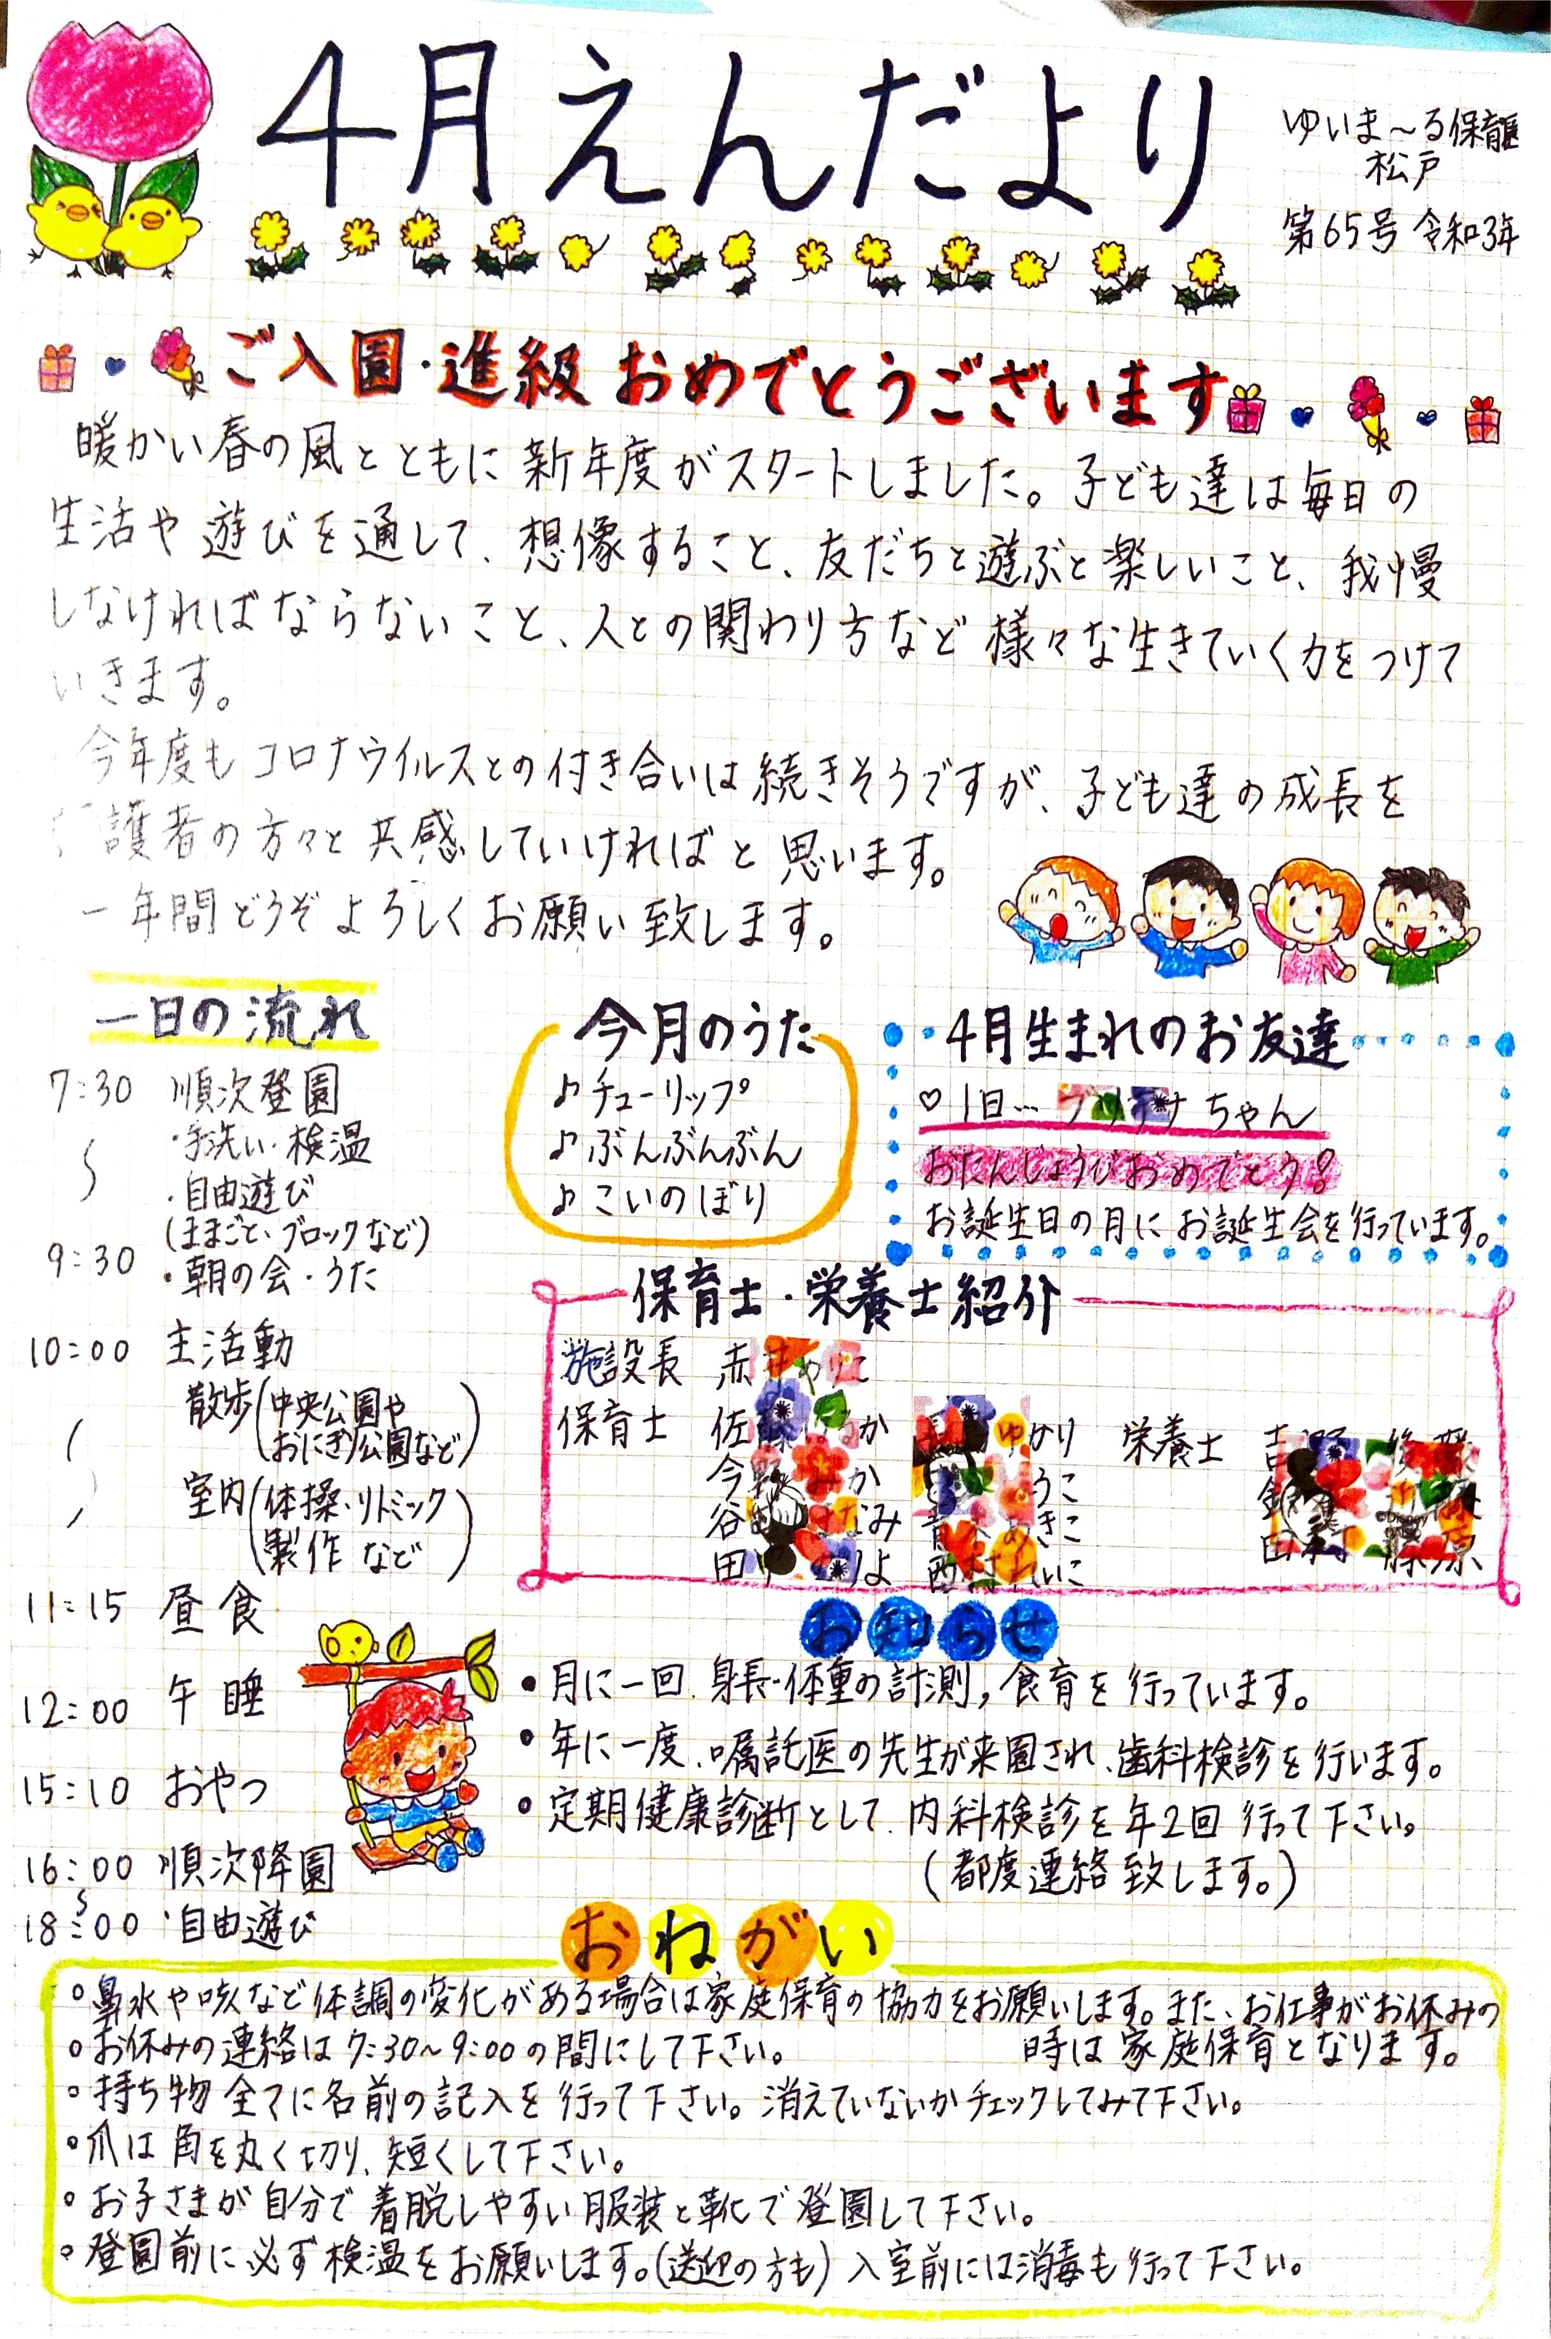 4月えんだより
ゆいま～る保育園
松戸
第65号 令和3年
ご入園・進級おめでとうございます
暖かい春の風とともに新年度がスタートしました。子ども達は毎日の
生活や遊びを通して、想像すること、友だちと遊ぶと楽しいこと、我慢
しなければならないこと、人との関わり方など様々な生きていく力をつけて
いきます。
今年度もコロナウイルスとの付き合いは続きそうですが、子ども達の成長を
護者の方々と共感していければと思います。
一年間どうぞよろしくお願い致します。
一日の流れ
7:30 順次登園
・手洗い・検温
・自由遊び
(ままごと、ブロックなど)
9:30 ・朝の会・うた
10:00 主活動
散歩(中央公園や
おにぎり公園など)
室内(体操・リトミック
製作 など)
11:15 昼食
12:00 午睡
15:10 おやつ
16:00 順次降園
〜
18:00 ・自由遊び
今月のうた
♪チューリップ
♪ぶんぶんぶん
♪こいのぼり
4月生まれのお友達
♡1日… ちゃん
おたんじょうびおめでとう!
お誕生日の月にお誕生会を行っています。
保育士・栄養士紹介
施設長 赤
保育士 佐 か ゆかり 栄養士 吉
今 か うこ
谷 なみ きこ
田 よ 西村 いこ 原
お知らせ
・月に一回、身長・体重の計測，食育を行っています。
・年に一度、嘱託医の先生が来園され、歯科検診を行います。
・定期健康診断として、内科検診を年2回行って下さい。
(都度連絡致します。)
おねがい
○鼻水や咳など体調の変化がある場合は家庭保育の協力をお願いします。また、お仕事がお休みの
時は家庭保育となります。
○お休みの連絡は7:30～9:00の間にして下さい。
○持ち物全てに名前の記入を行って下さい。消えていないかチェックしてみて下さい。
○爪は角を丸く切り、短くして下さい。
○お子さまが自分で着脱しやすい服装と靴で登園して下さい。
○登園前に必ず検温をお願いします。(送迎の方も)入室前には消毒も行って下さい。